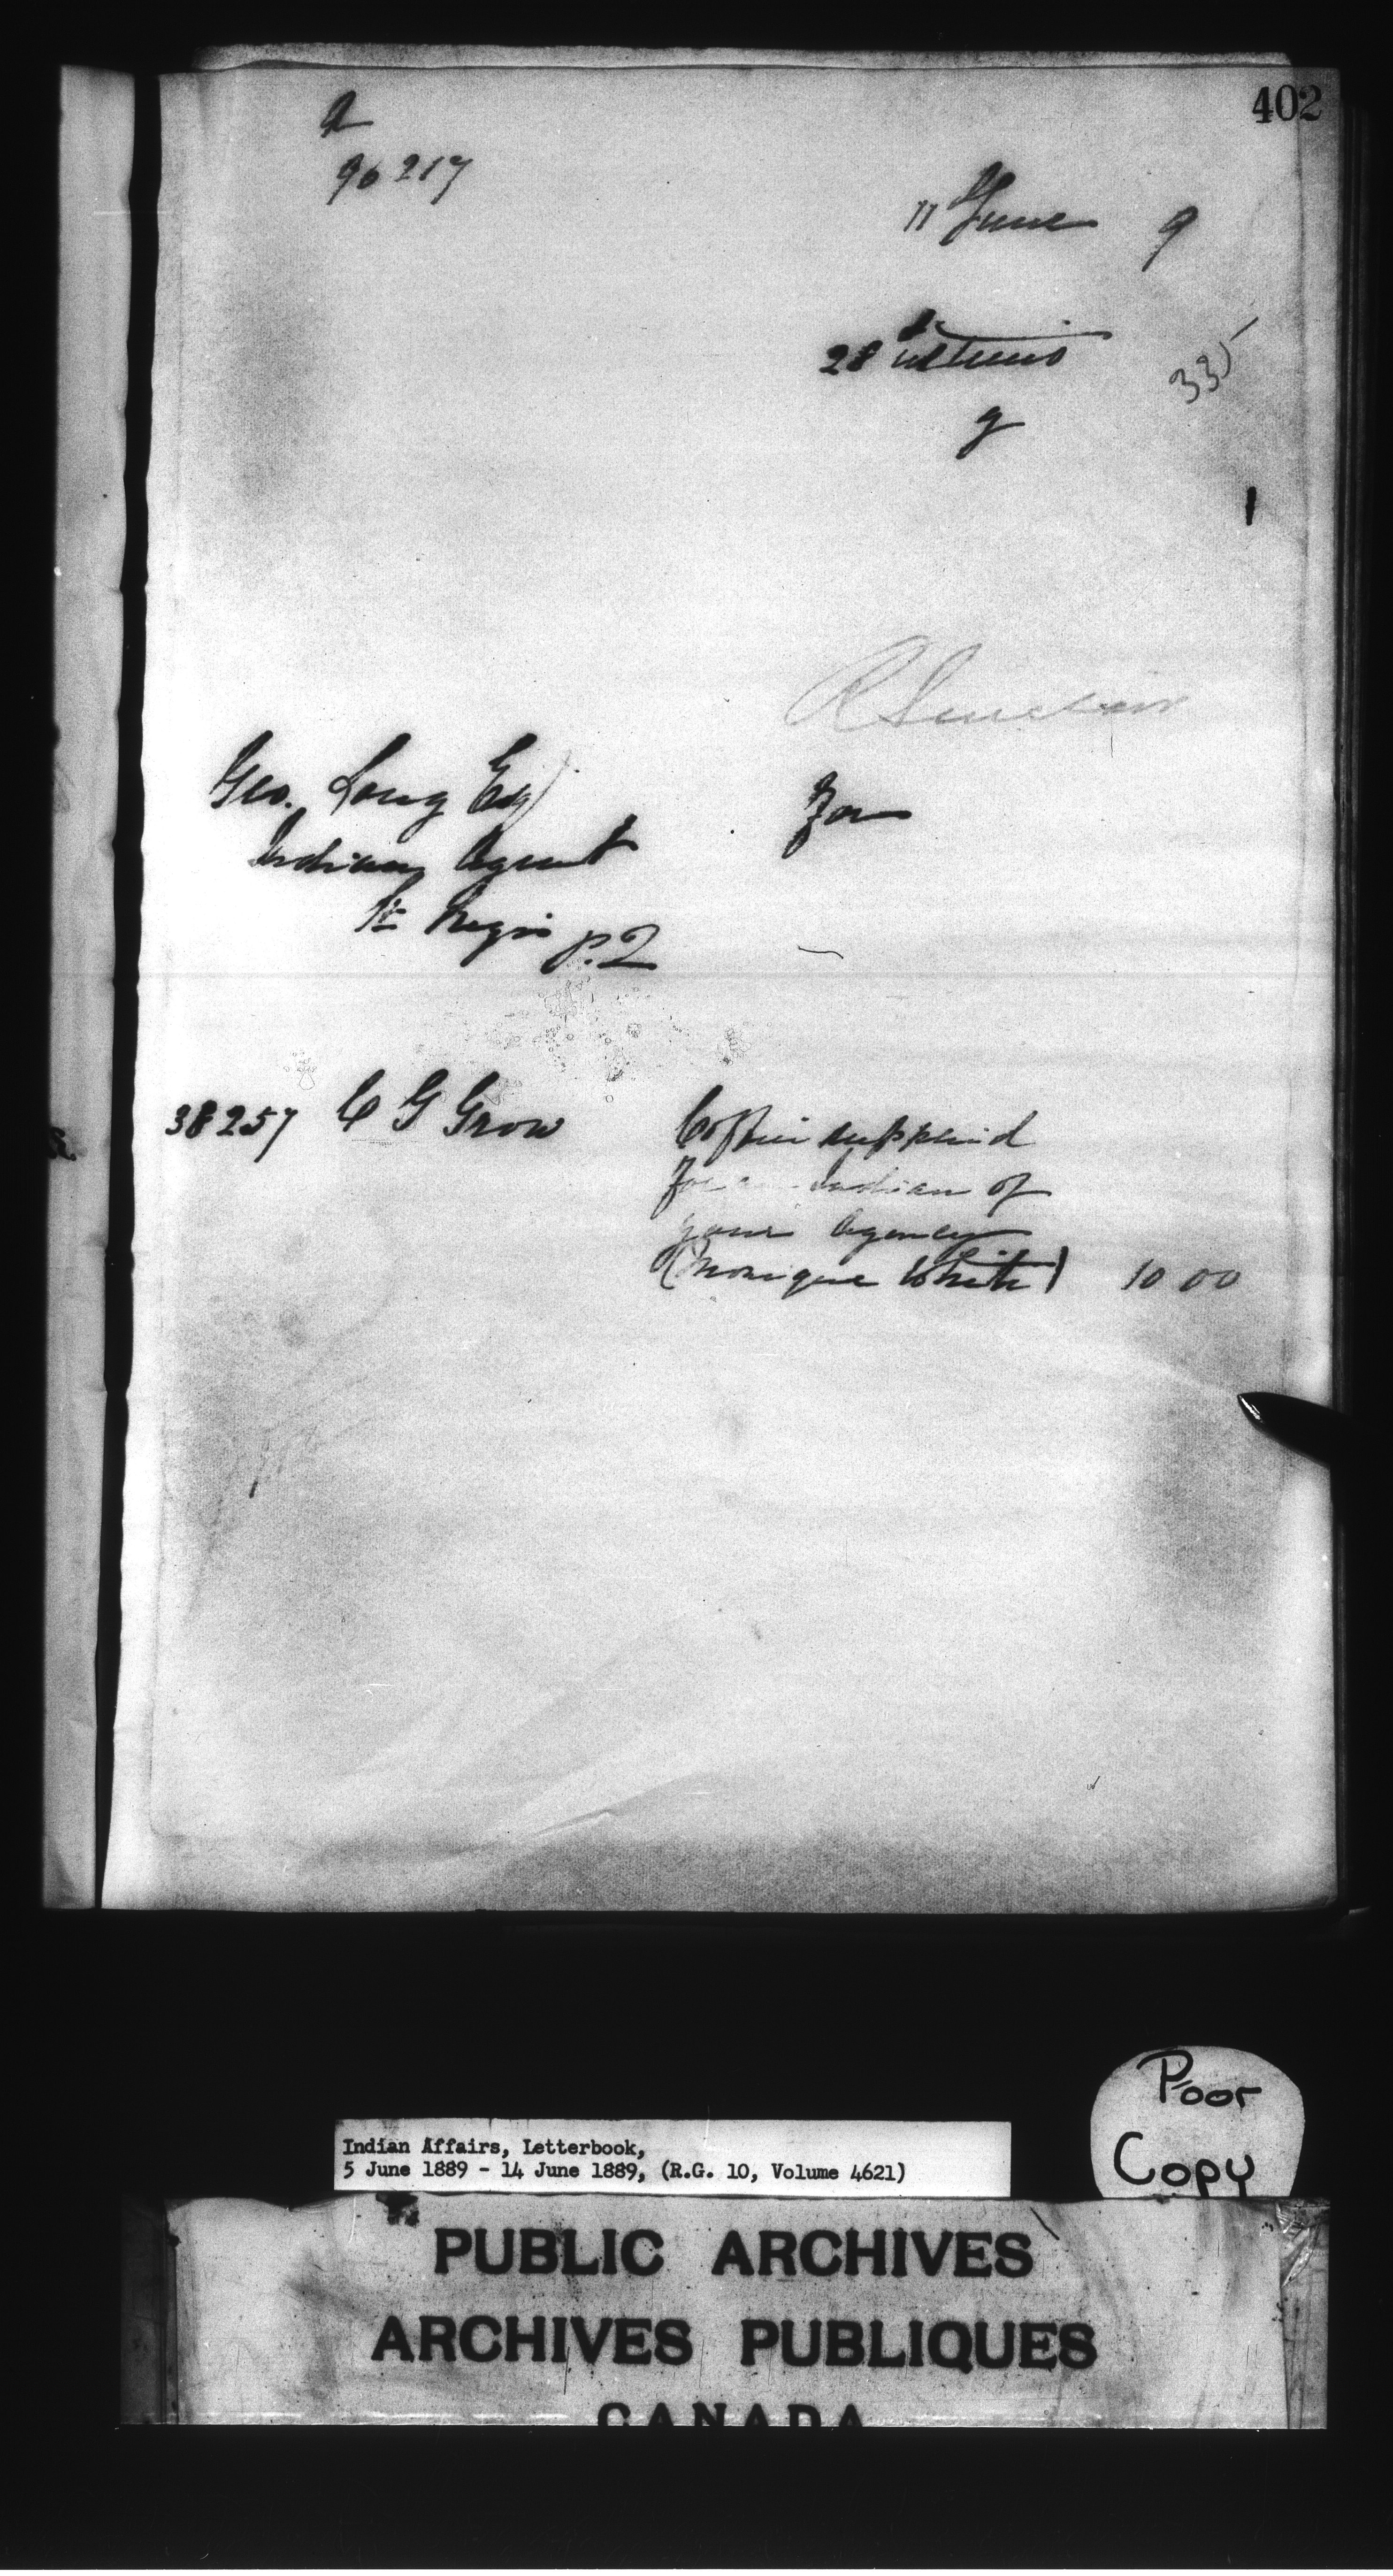 402
A
96217
11 June 9
28 ultimo
335
R Sinclair
Geo. Long Esq
for
Indian Agent
St Regis P.Q
38257 C G Grow Coffin supplied
for Indian of
your Agency
(Monique White) 10 00
Poor
Copy
Indian Affairs, Letterbook,
5 June 1889 - 14 June 1889, (R.G. 10, Volume 4621)
PUBLIC ARCHIVES
ARCHIVES PUBLIQUES
CANADA